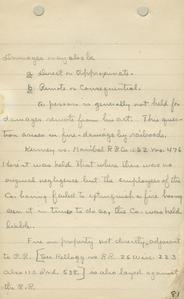 Damages may also be
a Direct or Approximate.
b Remote or Consequential.
A person is generally not held for
damages remote from his act. This ques-
tion arises in fire-damage by railroads.
Kenney vs. Hanibal R.R. Co. 62 Mo. 476
Here it was held that where there was no
original negligence but the employees of the
Co. having failed to extinguish a fire having
seen it in time to do so, the Co. was held
liable.
Fire on property not directly adjacent
to R.R. [See Kellogg vs. R.R. 26 Wis. 223
also 112 Ind. 538.] is also layed against
the R.R.